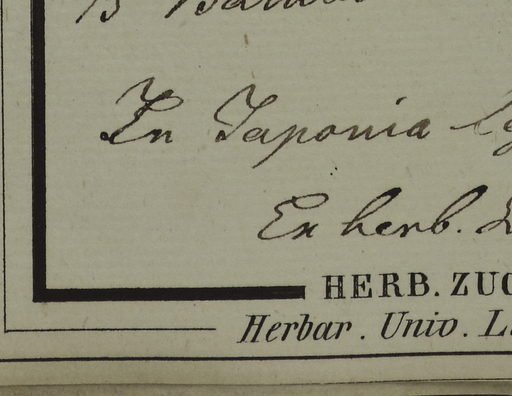 In Japonia
Ex herb.
HERB. ZUC
Herbar. Univ. L.